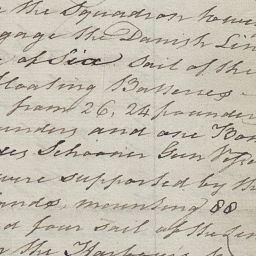 the Squadron
gage the Danish Line
of Six sail of the
floating Batteries -
from 26, 24 pounder
unders and one Bom
Schooner Gun
were supported by the
ands, mounting 88
d four sail of the Lin
the Harbour